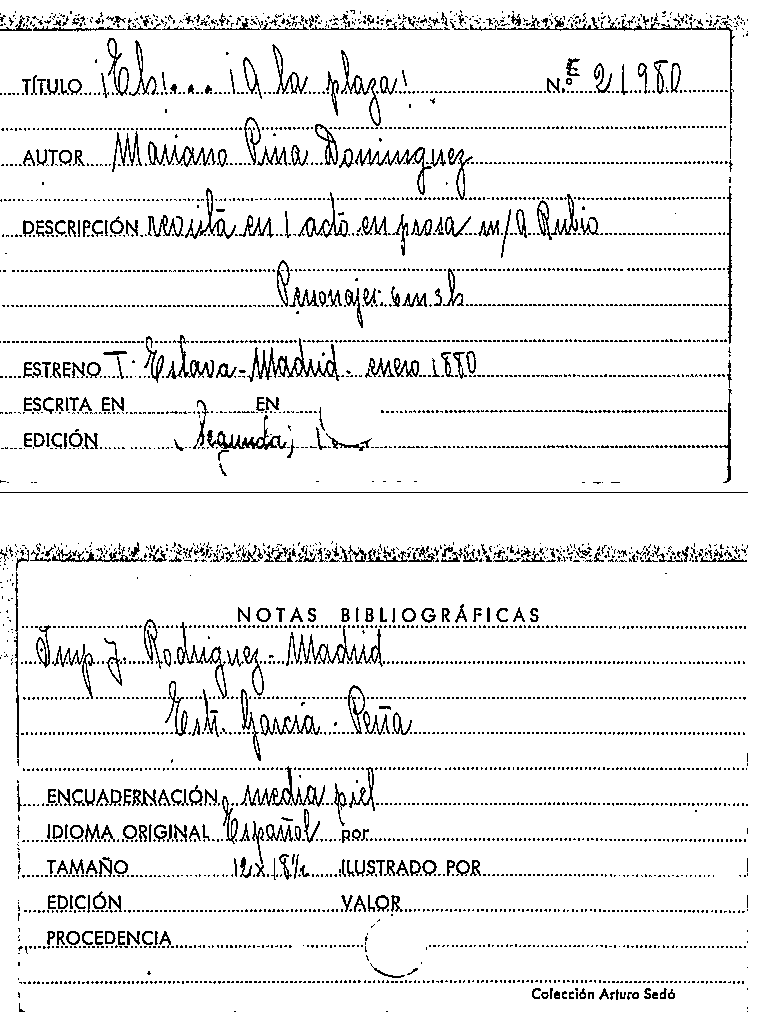 TÍTULO ¡Eh!... ¡A la plaza! N.º E 21980
AUTOR Mariano Pina Dominguez
DESCRIPCIÓN revista en 1 acto en prosa m/A Rubio
Personajes: 6m 3h
ESTRENO T. Eslava - Madrid - enero 1880
ESCRITA EN EN
EDICIÓN Segunda;
NOTAS BIBLIOGRÁFICAS
Imp J. Rodriguez - Madrid
Estr. Garcia - Peña
ENCUADERNACIÓN media piel
IDIOMA ORIGINAL Español por
TAMAÑO 12 x 18½ ILUSTRADO POR
EDICIÓN VALOR
PROCEDENCIA
Colección Arturo Sedó